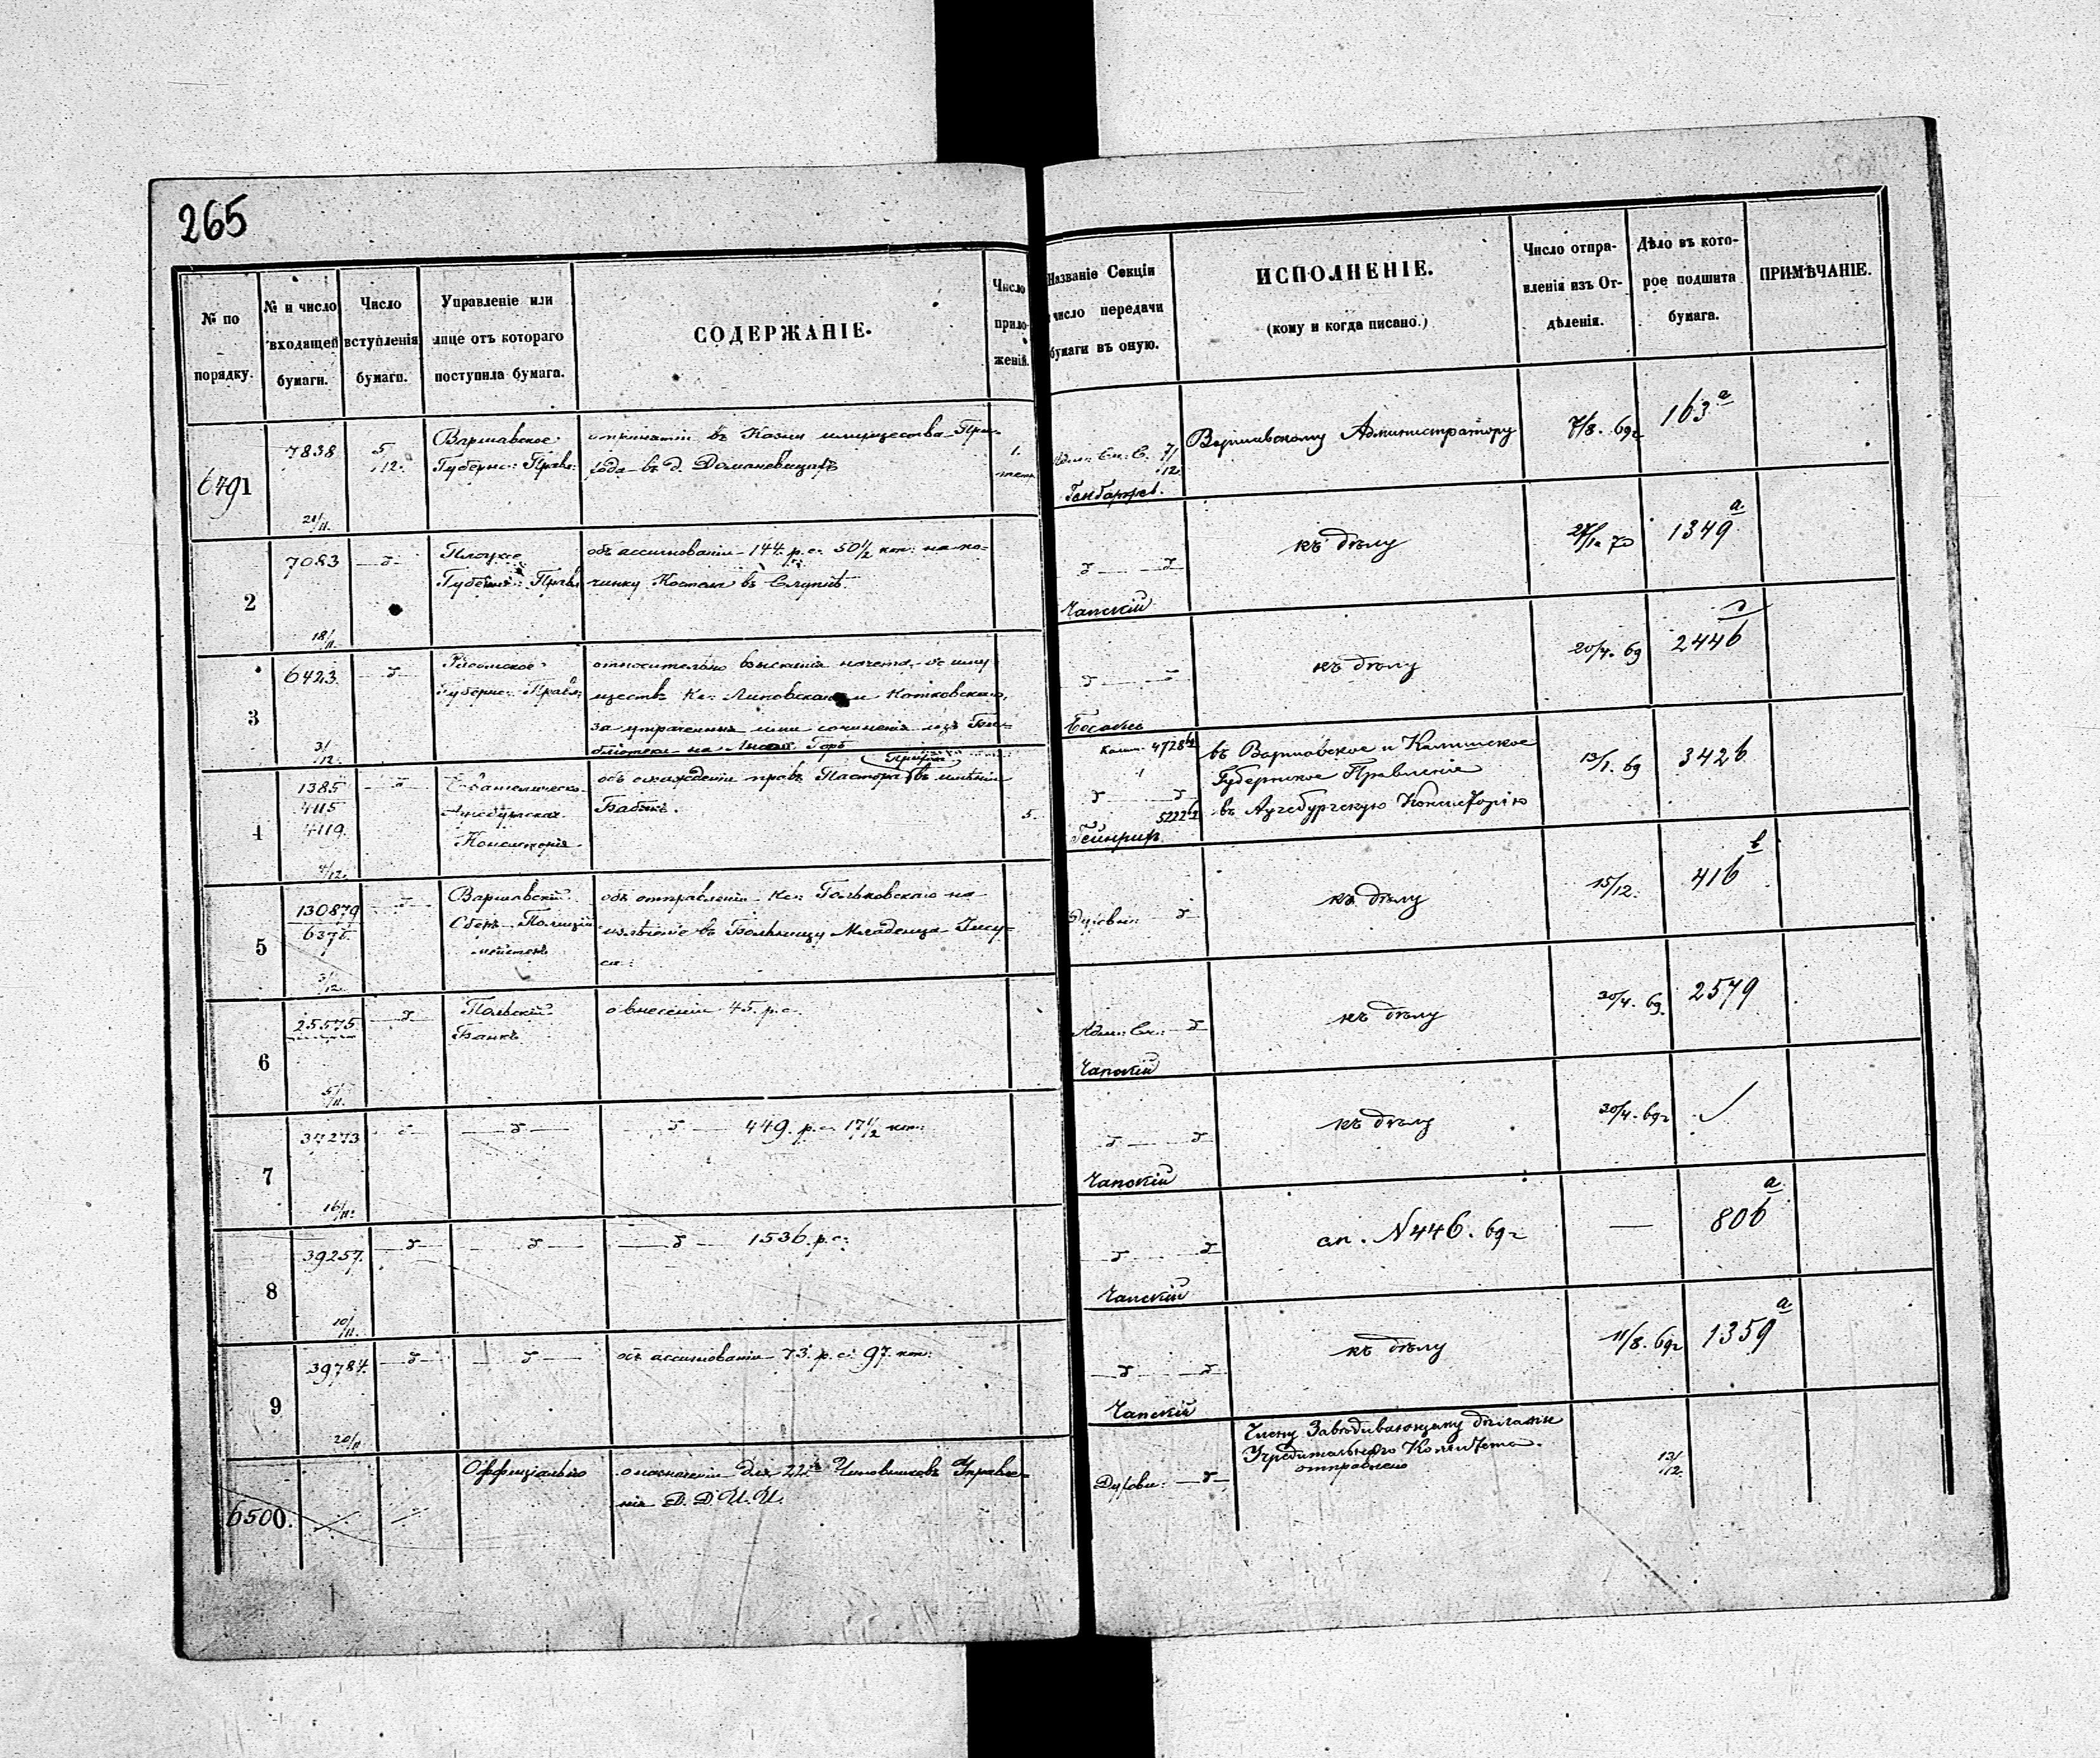 265
№ по порядку.
№ и число входящей бумаги.
Число вступленія бумаги.
Управленіе или лице отъ котораго поступила бумага.
СОДЕРЖАНІЕ.
Число приложеній.
Названіе Секціи число передачи бумаги въ оную.
ИСПОЛНЕНІЕ.
(кому и когда писано.)
Число отправленія изъ Отдѣленія.
Дѣло въ которое подшита бумага.
ПРИМѢЧАНІЕ.
6491
7838
21/11.
5/12.
Варшавское
Губернс: Правл:
въ Казну имущества
въ д. Домановицахъ
1.
7/12.
Варшавскому Администратору
7/8. 69 г
163 а
2
7083
18/11.
Плоцкое
Губернс: Правл
объ ассигнованіи 144 р. с. 50 1/2 коп: на по-
чинку Костела въ Слупнѣ.
Чапскій
къ дѣлу
1349 а.
3
6423
3/12.
Радомское
Губернс: Правл:
относительно взысканія начета съ иму
ществъ Кс: Липовскаго и Котковскаго,
за утраченныя ими сочиненія изъ Биб-
бліотеки на Лысой Горѣ
къ дѣлу
20/4. 69
2446
4
1385
4115
4119.
4/12.
Евангелическо-
Аугсбургская
Консисторія.
объ огражденіи правъ Пастора въ имѣніи
5.
4728
5222
Гейнрих
въ Варшавское и Калишское
Губернское Правленіе
въ Аугсбургскую Консисторію
13/1. 69
3426
5
130879
637
3/12.
Варшавскій
Оберъ-Полицій
мейстеръ
объ отправленіи Кс: Гольковскаго на
излѣченіе въ Больницу Младенца Іису-
са.
къ дѣлу
15/12.
416 в
6
25575
5/11.
Польскій
Банкъ
о внесеніи 45. р. с.
Адм: Ск:
Чапскій
къ дѣлу
30/4. 69.
2579
7
37273
16/11.
449. р. с. 17 1/2 коп:
Чапскій
къ дѣлу
30/4. 69 г
8
39257.
10/11.
1536. р. с:
Чапскій
сп. N 446. 69 г
806 а
9
39784.
20/11
объ ассигнованіи 73. р. с. 97. коп:
Чапскій
къ дѣлу
11/8. 69 г
1359 а
6500.
о назначеніи для 22 Чиновниковъ Управле-
нія Д. Д. И. И.
Члену Завѣдывающему дѣлами
Учредительнаго Комитета.
отправлено
13/12.